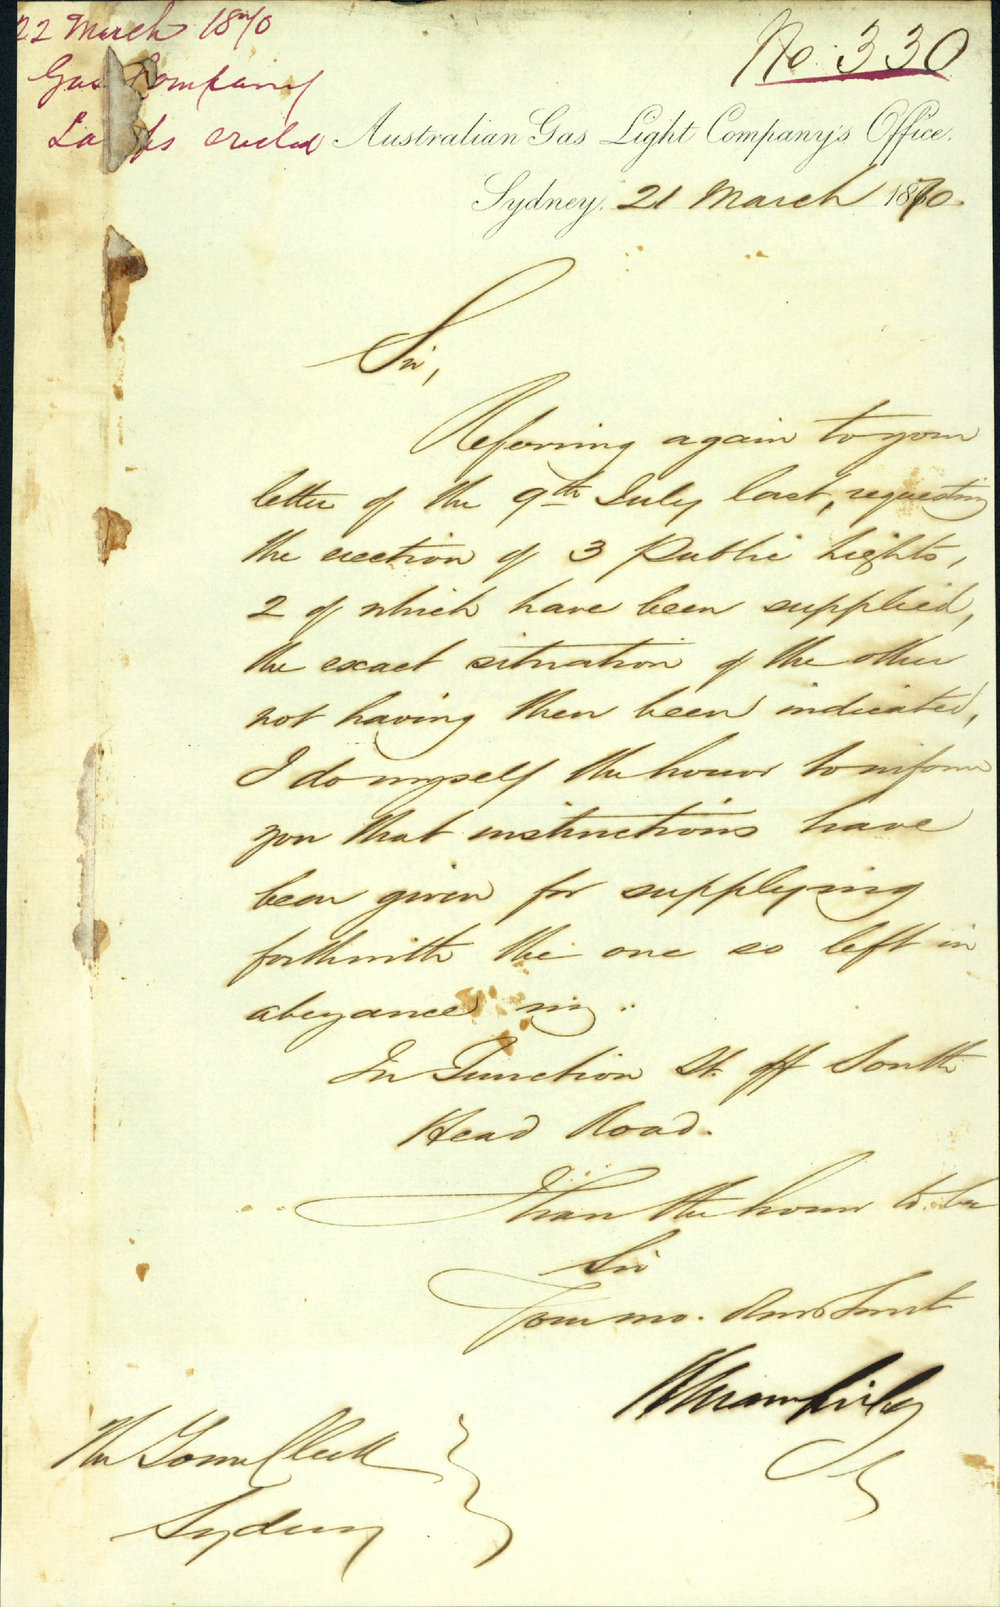 22 March 1870
Gas Company
Lamps erected
No. 330
Australian Gas Light Company's Office.
Sydney, 21 March 1870.
Sir,
Referring again to your
letter of the 9th July last, requesting
the erection of 3 Public lights,
2 of which have been supplied,
the exact situation of the other
not having then been indicated,
I do myself the honor to inform
you that instructions have
been given for supplying
forthwith the one so left in
abeyance viz:
In Junction St. off South
Head Road.
I have the honor to be
Sir
Your mo. Obed Servt
The Town Clerk
Sydney